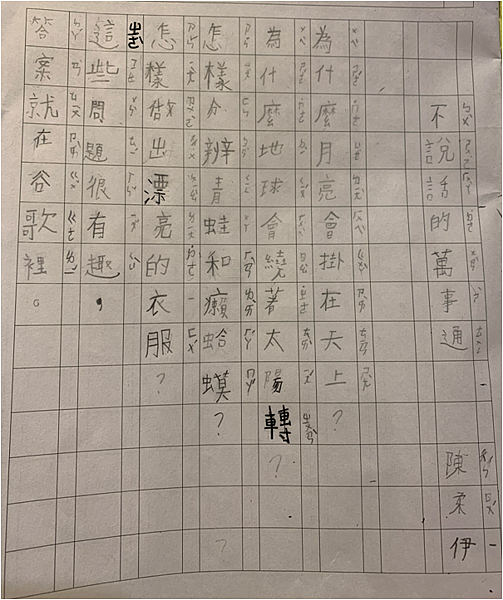 不說話的萬事通 陳柔伊
為什麼月亮會掛在天上？
為什麼地球會繞著太陽轉？
怎樣分辨青蛙和癩蛤蟆？
怎樣做出漂亮的衣服？
這些問題很有趣，
答案就在谷歌裡。